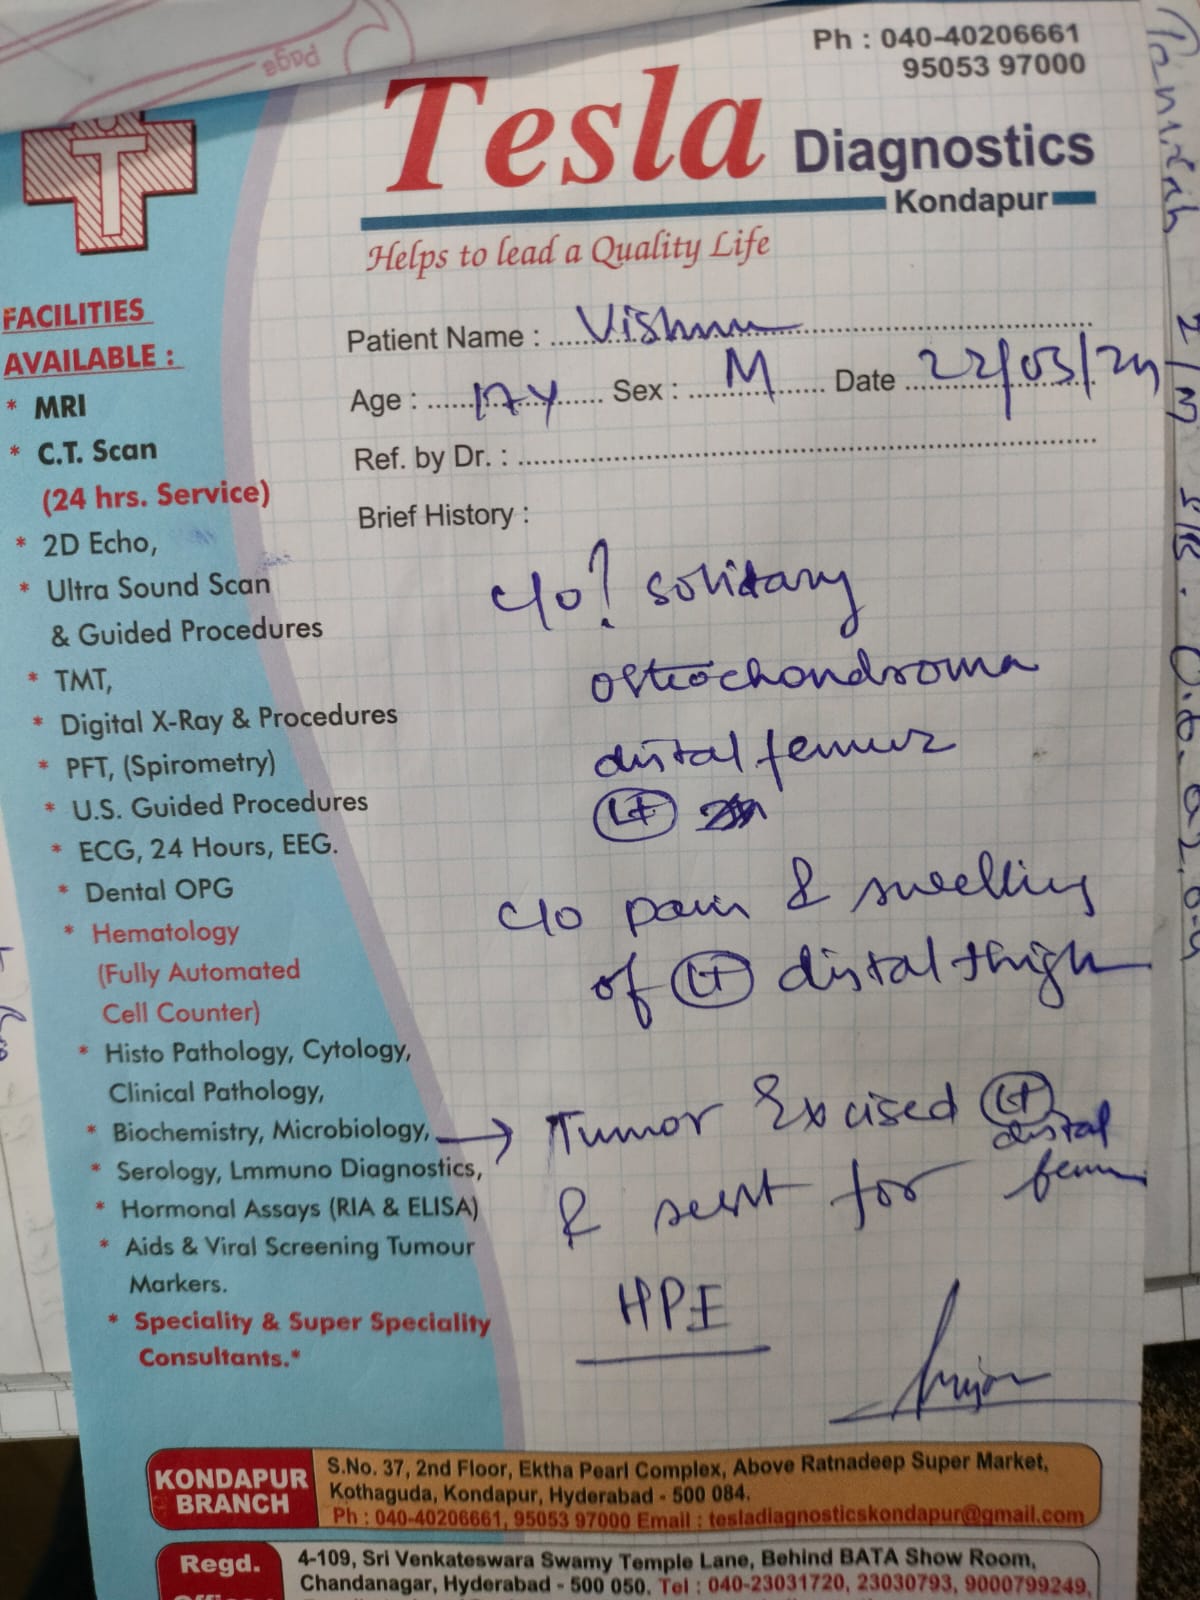 Page
Ph : 040-40206661
95053 97000
Tesla Diagnostics
Kondapur
Helps to lead a Quality Life
T
FACILITIES
AVAILABLE :
* MRI
* C.T. Scan
(24 hrs. Service)
* 2D Echo,
* Ultra Sound Scan
& Guided Procedures
* TMT,
* Digital X-Ray & Procedures
* PFT, (Spirometry)
* U.S. Guided Procedures
* ECG, 24 Hours, EEG.
* Dental OPG
* Hematology
(Fully Automated
Cell Counter)
* Histo Pathology, Cytology,
Clinical Pathology,
* Biochemistry, Microbiology,
* Serology, Lmmuno Diagnostics,
* Hormonal Assays (RIA & ELISA)
* Aids & Viral Screening Tumour
Markers.
* Speciality & Super Speciality
Consultants.*
Patient Name : Vishnu
Age : 17Y Sex : M Date 22/03/24
Ref. by Dr. :
Brief History :
c/o ? solitary
osteochondroma
distal femur
Lt
c/o pain & swelling
of Lt distal thigh
→ Tumor Excised Lt
distal
femur
& sent for
HPE
KONDAPUR
BRANCH
S.No. 37, 2nd Floor, Ektha Pearl Complex, Above Ratnadeep Super Market,
Kothaguda, Kondapur, Hyderabad - 500 084.
Ph : 040-40206661, 95053 97000 Email : tesladiagnosticskondapur@gmail.com
Regd.
4-109, Sri Venkateswara Swamy Temple Lane, Behind BATA Show Room,
Chandanagar, Hyderabad - 500 050. Tel : 040-23031720, 23030793, 9000799249,